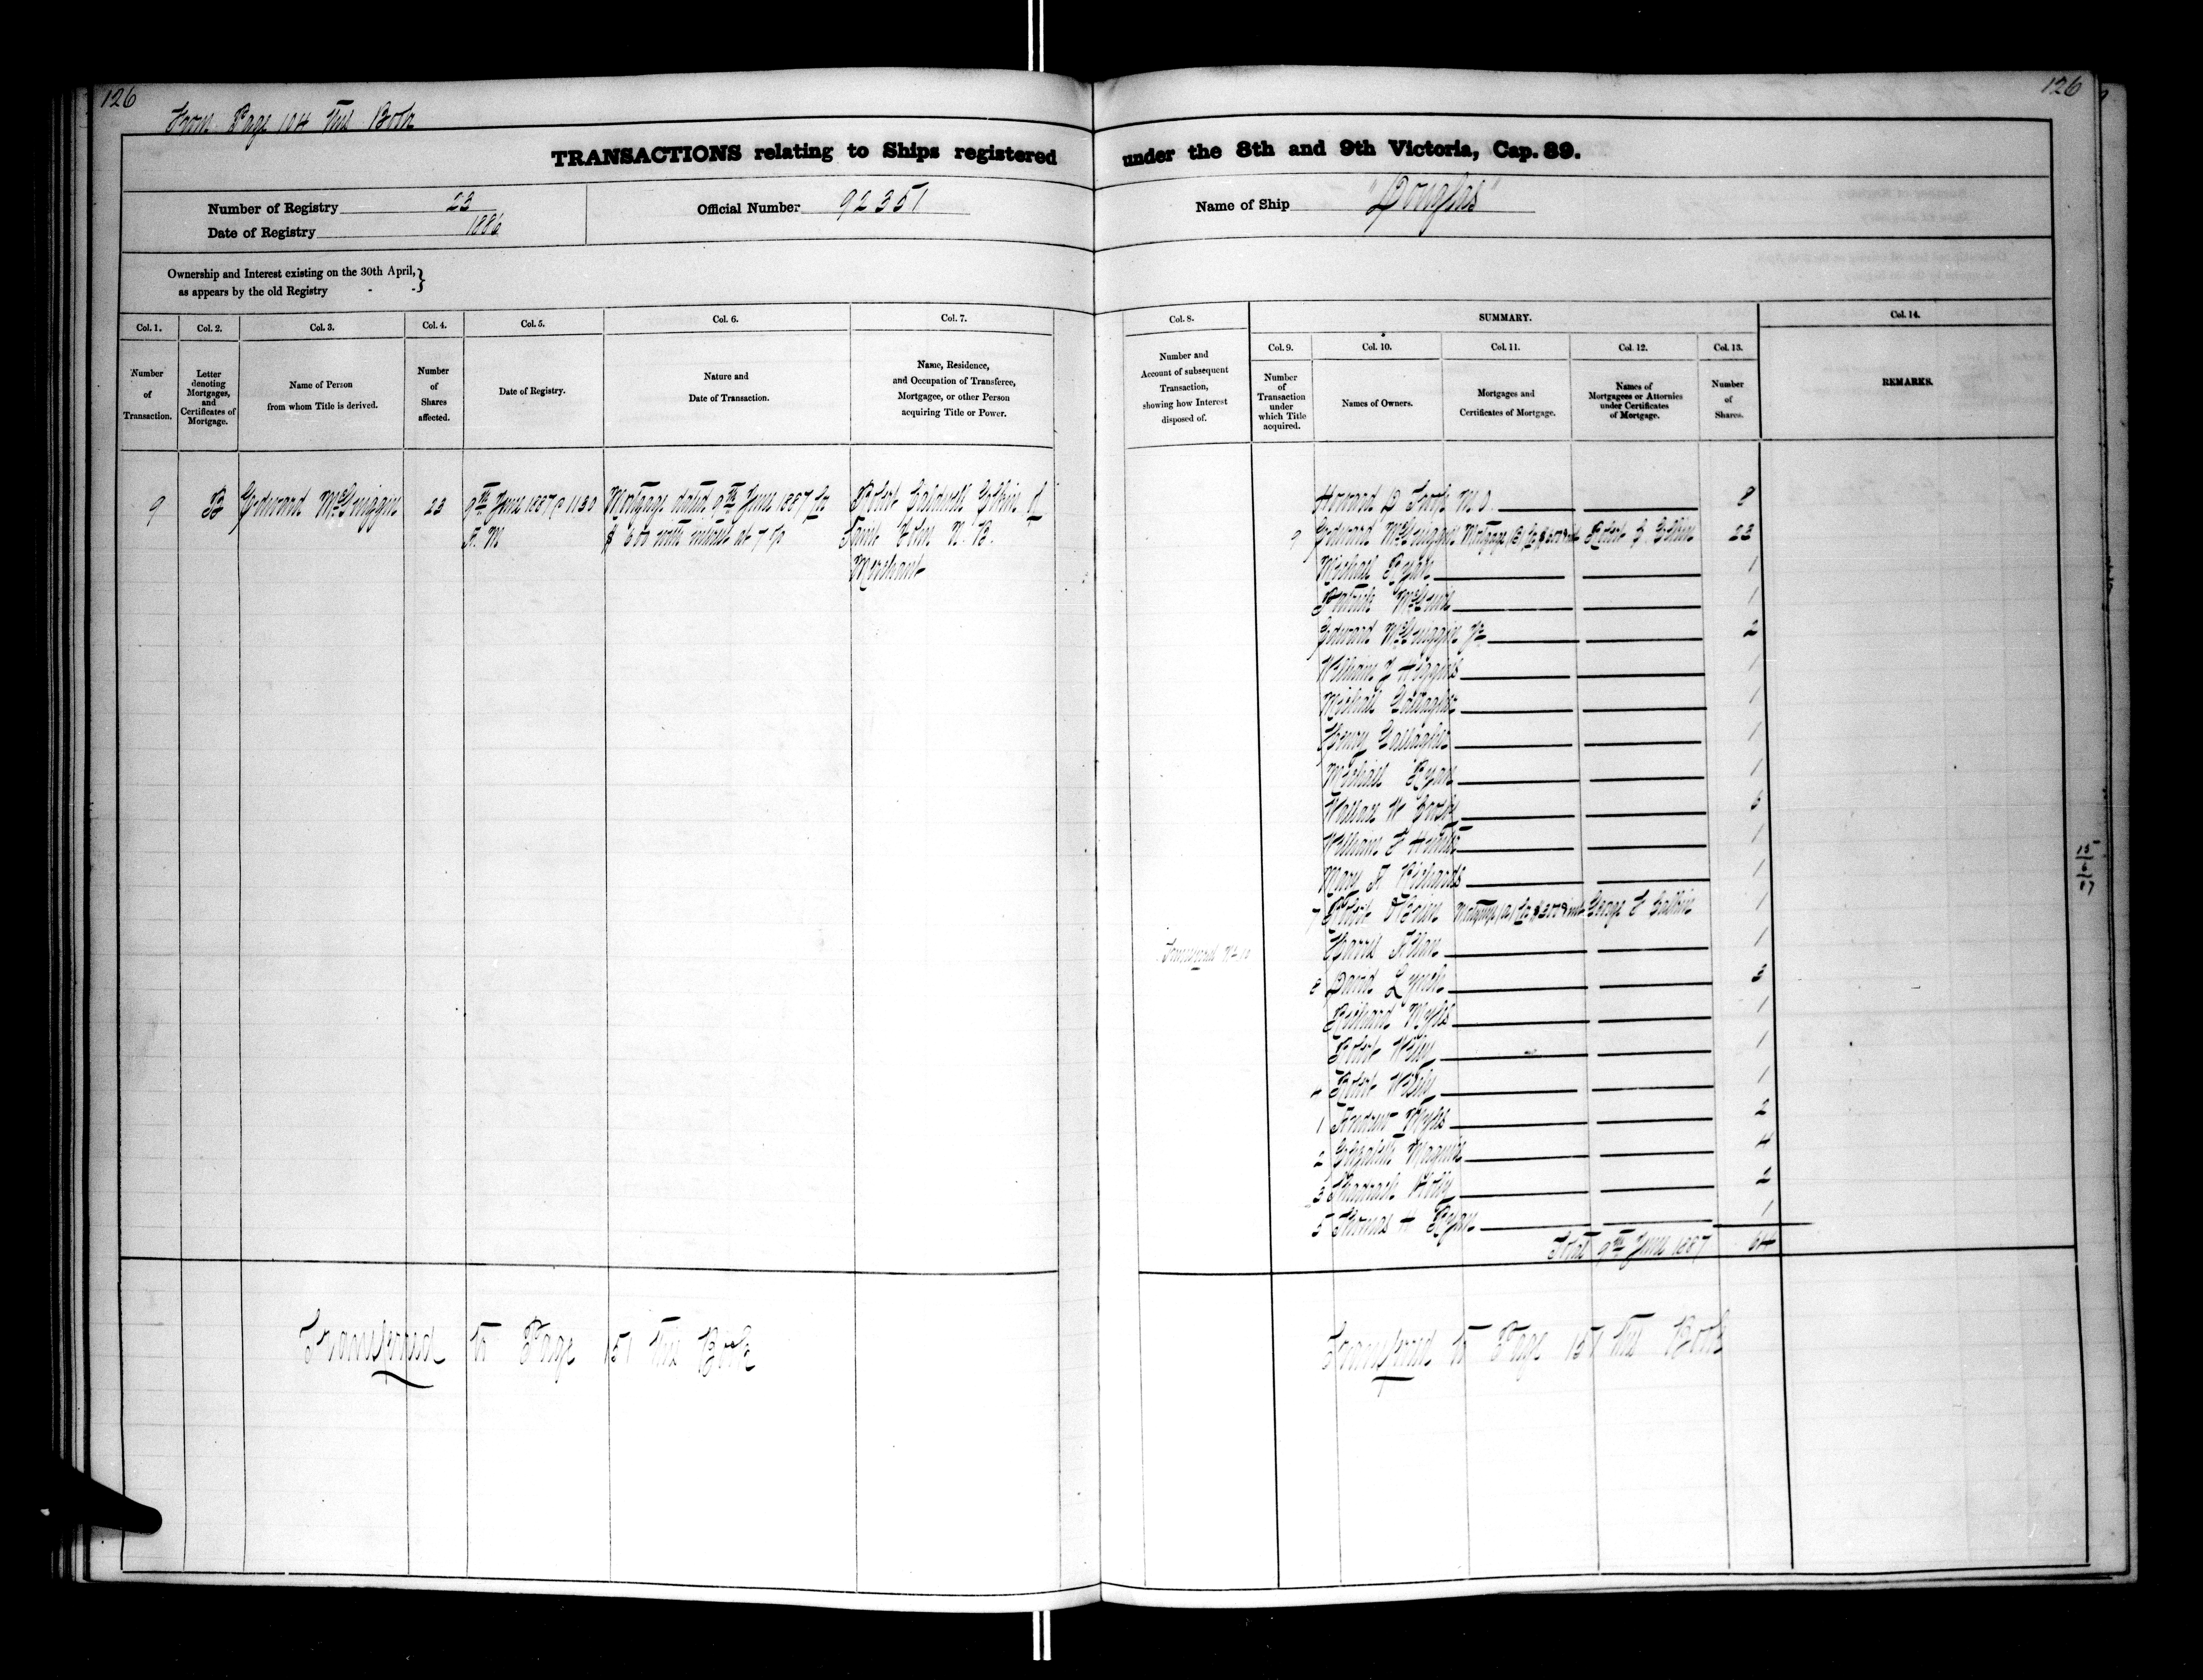 126
126
From Page 104 This Book
TRANSACTIONS relating to Ships registered under the 8th and 9th Victoria, Cap. 89.
Number of Registry 23
Date of Registry 1886
Official Number 92351
Name of Ship "Douglas"
Ownership and Interest existing on the 30th April, }
as appears by the old Registry - - }
Col. 1.
Number
of
Transaction.
Col. 2.
Letter
denoting
Mortgages,
and
Certificates of
Mortgage.
Col. 3.
Name of Person
from whom Title is derived.
Col. 4.
Number
of
Shares
affected.
Col. 5.
Date of Registry.
Col. 6.
Nature and
Date of Transaction.
Col. 7.
Name, Residence,
and Occupation of Transferee,
Mortgagee, or other Person
acquiring Title or Power.
Col. 8.
Number and
Account of subsequent
Transaction,
showing how Interest
disposed of.
SUMMARY.
Col. 9.
Number
of
Transaction
under
which Title
acquired.
Col. 10.
Names of Owners.
Col. 11.
Mortgages and
Certificates of Mortgage.
Col. 12.
Names of
Mortgagees or Attornies
under Certificates
of Mortgage.
Col. 13.
Number
of
Shares.
Col. 14.
REMARKS.
9 B Edward McGuiggin 23 9th June 1887 @ 1130 Mortgage dated 9th June 1887 for Robert Caldwell Elkin of
A. M $600 with interest at 7 % Saint John N. B.
Merchant
Howard D Troop M.O. 8
9 Edward McGuiggin Mortgage (B) for $600 & int Robt C. Elkin 23
Michael Ryan 1
Patrick 1
Edward McGuiggin Jr 2
William J Higgins 1
Michael Gallagher 1
Henry Gallagher 1
Michael Ryan 1
W 5
William E 1
Mary A Richards 1
7 Robert Mortgage (A) for & int George F 1
Transferred No 10 Harris Allan 1
8 David Lynch 3
Richard Myles 1
Robert Wiley 1
Robert Wiley 1
1 Andrew Myles 2
2 Elizabeth Maguire 4
3 Shadrach Holly 2
5 Thomas H Ryan 1
Total 9th June 1887 64
15
6
87
Transferred to Page 151 This Book
Transferred to Page 151 This Book